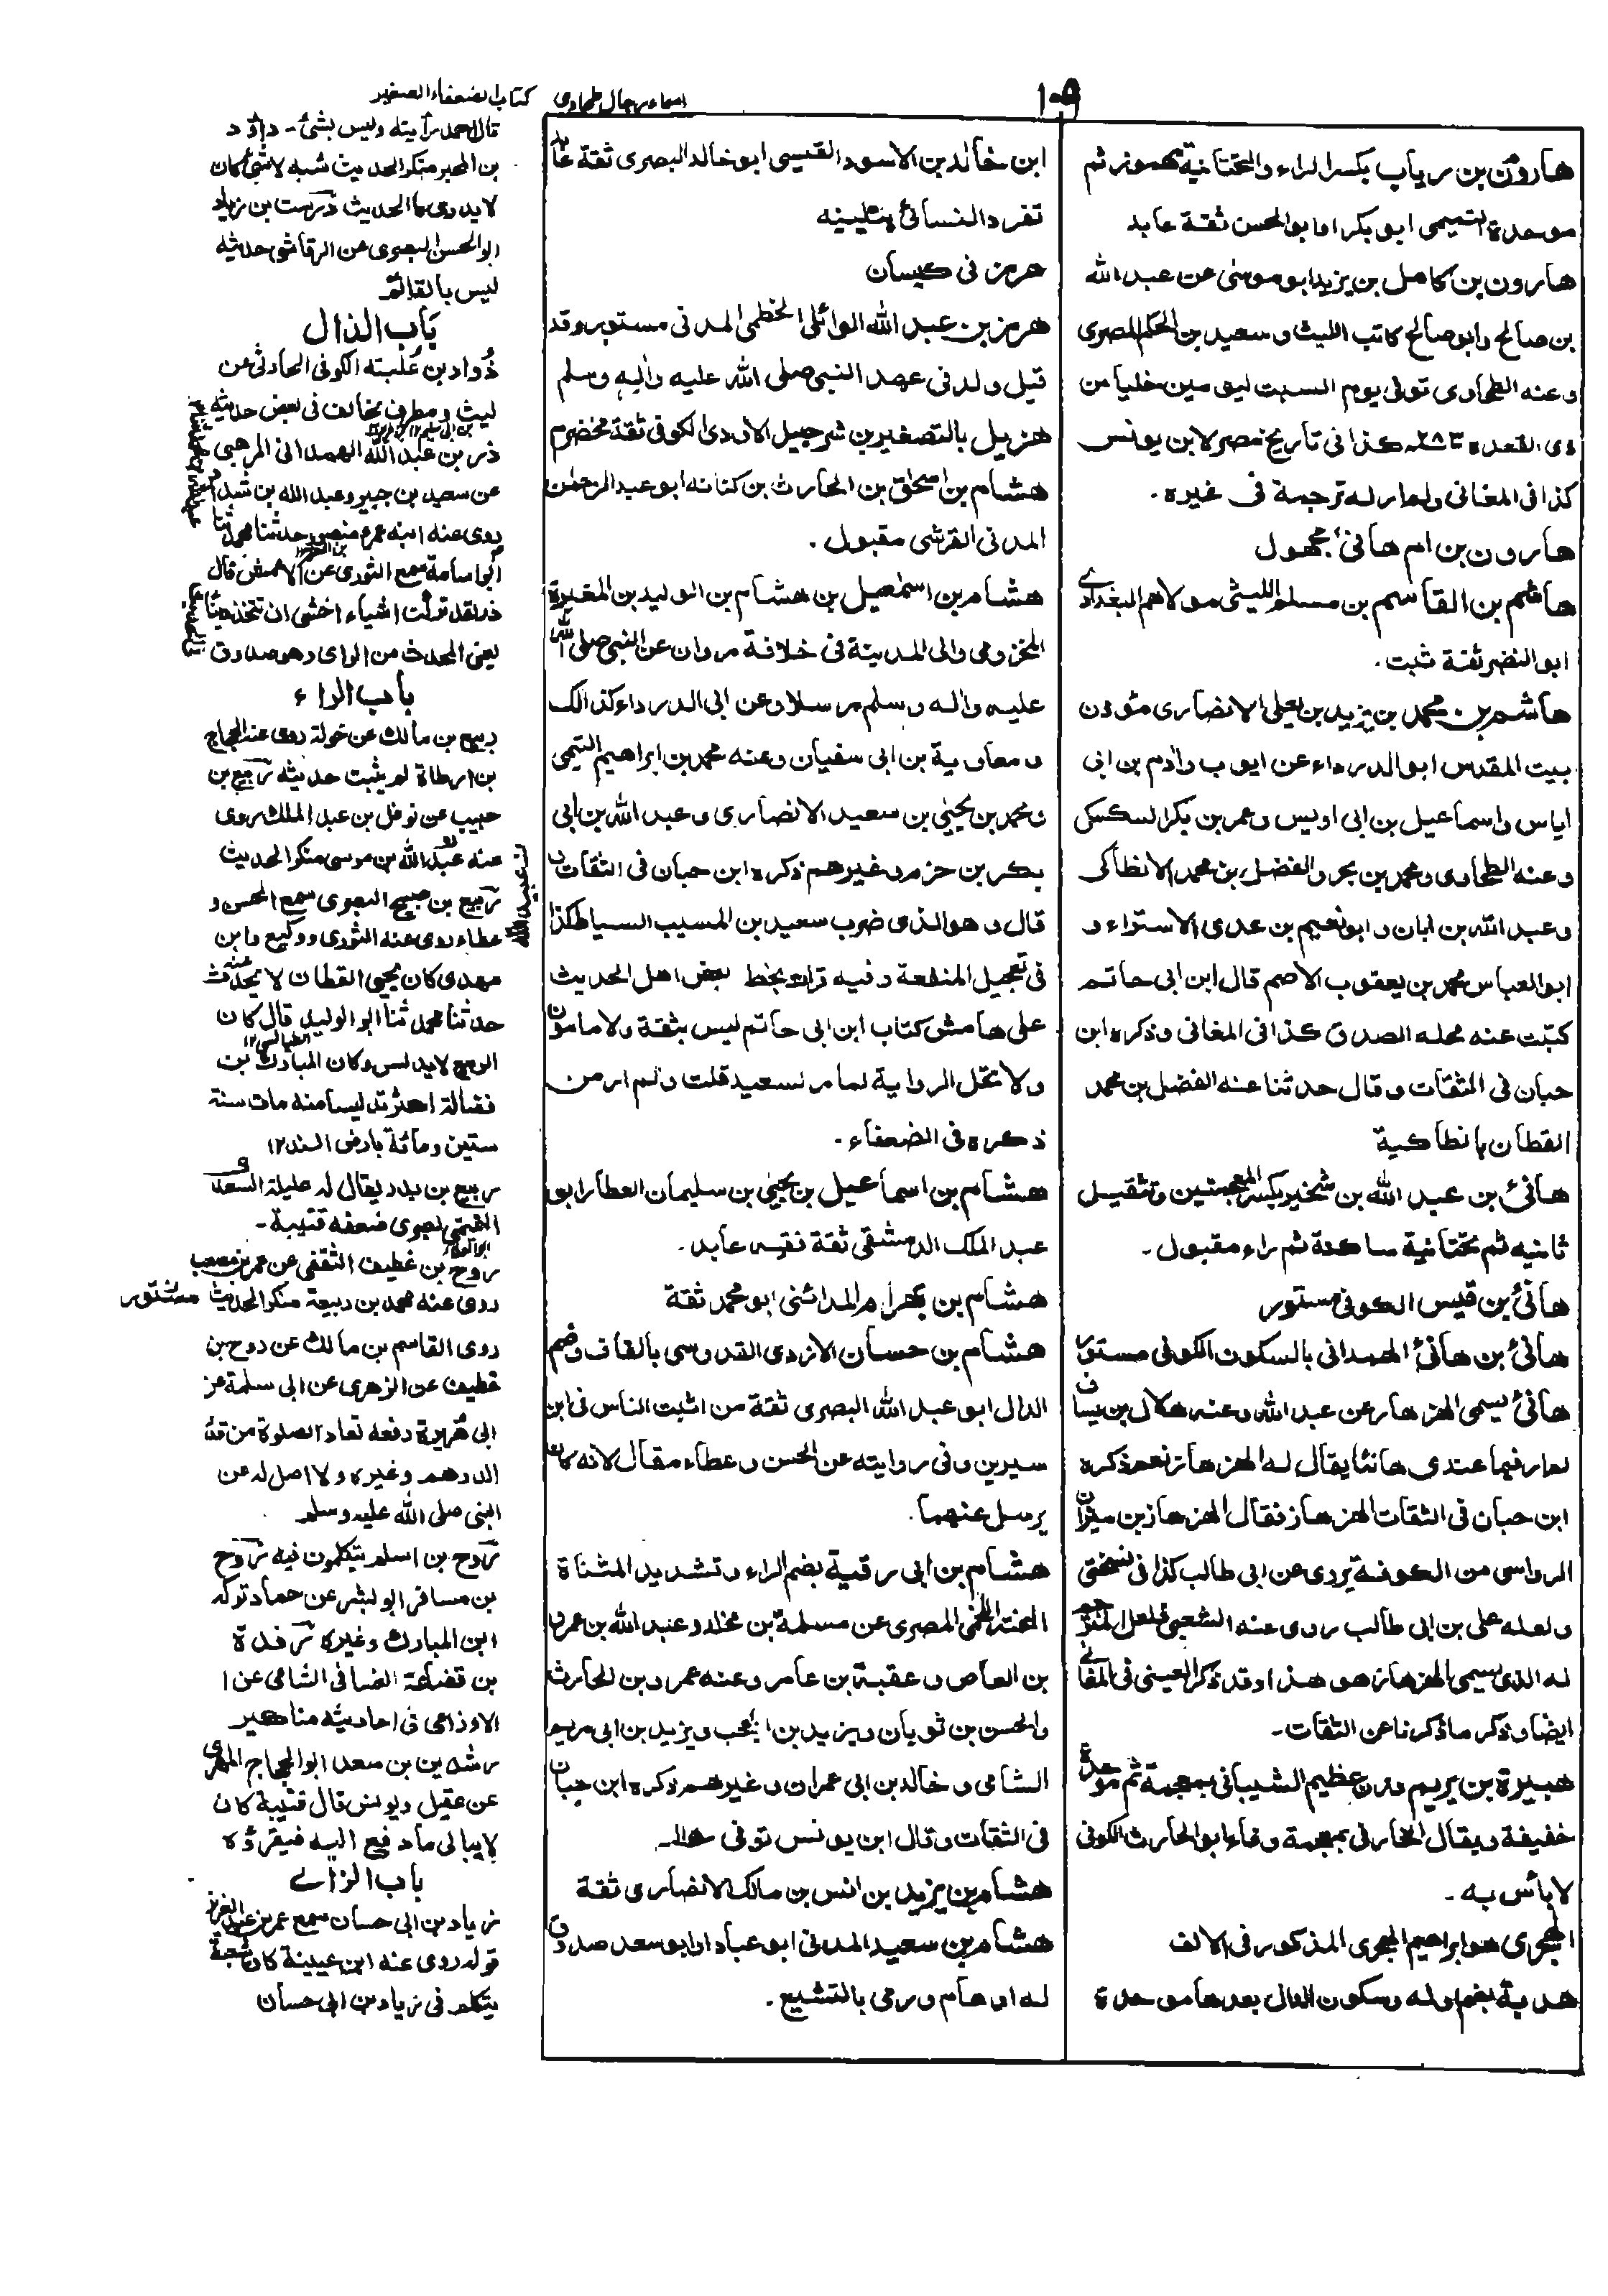 ١٠٩
اسماء رجال طحاوى
كتاب الضعفاء الصغير
هارون بن رياب بكسر الراء والتحتانية مهموز ثم
موحدة التميمى ابو بكر او ابو الحسن ثقة عابد
هارون بن كامل بن يزيد ابو موسٰى عن عبد الله
بن صالح وابو صالح كاتب الليث وسعيد بن الحكم المصرى
وعنه الطحاوى توفى يوم السبت ليومين خليا من
ذى القعدة ٢٨٣ھ كذا فى تاريخ مصر لابن يونس
كذا فى المغانى ولم ار له ترجمة فى غيره۔
هارون بن ام هانئ مجهول
هاشم بن القاسم بن مسلم الليثى مولاهم البغدادى
ابو النضر ثقة ثبت۔
هاشم بن محمد بن يزيد بن يعلى الانصارى مؤذن
بيت المقدس ابو الدرداء عن ايوب وادم بن ابى
اياس واسماعيل بن ابى اويس وعمر بن بكر السكسكى
وعنه الطحاوى ومحمد بن بحر والفضل بن محمد الانطاكى
وعبد الله بن ابان وابو نعيم بن عدى الاستراء و
ابو العباس محمد بن يعقوب الاصم قال ابن ابى حاتم
كتبت عنه محله الصدق كذا فى المغانى وذكره ابن
حبان فى الثقات وقال حدثنا عنه الفضل بن محمد
القطان بانطاكية
هانئ بن عبد الله بن شخير بكسر المعجمتين وتثقيل
ثانيه ثم تحتانية ساكنة ثم راء مقبول۔
هانئ بن قيس الكوفى مستور
هانئ بن هانئ الهمدانى بالسكون الكوفى مستور
هانئ يسمى الهزهاز عن عبد الله وعنه هلال بن يساف
لم ار فيما عندى هانئا يقال له الهزهاز نعم ذكره
ابن حبان فى الثقات الهزهاز فقال الهزهاز بن ميزان
الرواسى من الكوفة يروى عن ابى طالب كذا فى نسختى
ولعله على بن ابى طالب روى عنه الشعبى فلعل المترجم
له الذى يسمى الهزهاز هو هذا وقد ذكر العينى فى المغانى
ايضا وذكر ما ذكرنا عن الثقات۔
هبيرة بن يريم وزن عظيم الشيبانى بمعجمة ثم موحدة
خفيفة ويقال الخارفى بمعجمة وفاء ابو الحارث الكوفى
لا بأس به۔
الهجرى هو ابراهيم الهجرى المذكور فى الالف
هدبة بضم اوله وسكون الدال بعدها موحدة
ابن خالد بن الاسود القيسى ابو خالد البصرى ثقة عابد
تفرد النسائى بتليينه
هرمز فى كيسان
هرمز بن عبد الله الوائلى الخطمى المدنى مستور وقد
قيل ولد فى عهد النبى صلى الله عليه واٰله وسلم
هزيل بالتصغير بن شرحبيل الاودى الكوفى ثقة مخضرم
هشام بن اسحٰق بن الحارث بن كنانه ابو عبد الرحمٰن
المدنى القرشى مقبول۔
هشام بن اسمٰعيل بن هشام بن الوليد بن المغيرة
المخزومى والى المدينة فى خلافة مروان عن النبى صلى الله
عليه واٰله وسلم مرسلا وعن ابى الدرداء كذالك
ومعاوية بن ابى سفيان وعنه محمد بن ابراهيم التيمى
ومحمد بن يحيىٰ بن سعيد الانصارى وعبد الله بن ابى
بكر بن حزم وغيرهم ذكره ابن حبان فى الثقات
قال وهو الذى ضرب سعيد بن المسيب السياط كذا
فى تعجيل المنفعة وفيه قرات بخط بعض اهل الحديث
على هامش كتاب ابن ابى حاتم ليس بثقة ولا مامون
ولا تحل الرواية لما مر لسعيد قلت ولم ار من
ذكره فى الضعفاء۔
هشام بن اسماعيل بن يحيىٰ بن سليمان العطار ابو
عبد الملك الدمشقى ثقة فقيه عابد۔
هشام بن بهرام المدائنى ابو محمد ثقة
هشام بن حسان الازدى القدوسى بالقاف وضم
الدال ابو عبد الله البصرى ثقة من اثبت الناس فى ابن
سيرين وفى روايته عن الحسن وعطاء مقال لانه كان
يرسل عنهما۔
هشام بن ابى رقية بضم الراء وتشديد المثناة
اللخمى المصرى عن مسلمة بن مخلد وعبد الله بن عمرو
بن العاص وعقبة بن عامر وعنه عمرو بن الحارث
والحسن بن ثوبان ويزيد بن ابى مريم
الشامى وخالد بن ابى عمران وغيرهم ذكره ابن حبان
فى الثقات وقال ابن يونس توفى
هشام بن يزيد بن انس بن مالك الانصارى ثقة
هشام بن سعيد المدنى ابو عباد او ابو سعد صدوق
له اوهام ورمى بالتشيع۔
قال احمد رأيته وليس بشئ۔ داؤد
بن المحبر منكر الحديث شبه لا شئ كان
لا يدرى ما الحديث درست بن زياد
ابو الحسن البصرى عن الرقاشى حديثه
ليس بالقائم
باب الذال
ذُواد بن عُلبته الكوفى الحارثى عن
ليث ومطرف يخالف فى بعض حديثه
ذر بن عبد الله الهمدانى المرهبى
عن سعيد بن جبير وعبد الله بن شداد
روى عنه ابنه عمر ومنصور حدثنا محمد ثنا
ابو اسامة سمع الثورى عن الاعمش قال
ذر لقد تركت اشياء اخشى ان تتخذ دينًا
يعنى المحدث من الراى وهو صدوق
باب الراء
ربيع بن مالك عن خولة روى عنه الحجاج
بن ارطاة لم يثبت حديثه ربيع بن
حبيب عن نوفل بن عبد الملك روى
عنه عبد الله بن موسى منكر الحديث
عبيد الله
ربيع بن صبيح البصرى سمع الحسن و
عطاء روى عنه الثورى ووكيع وابن
مهدى كان يحيى القطان لا يحدث عنه
حدثنا محمد ثنا ابو الوليد قال كان
الطيالسى ١٢
الربيع لا يدلس وكان المبارك بن
فضالة اكثر تدليسا منه مات سنة
ستين ومائة بارض السند ١٢
ربيع بن بدر يقال له عليلة السعدى
التميمى بصرى ضعفه قتيبة۔
روح بن غطيف الثقفى عن عمر بن مصعب
روى عنه محمد بن ربيعة منكر الحديث
روى القاسم بن مالك عن روح بن
غطيف عن الزهرى عن ابى سلمة عن
ابى هريرة رفعه تعاد الصلوة من قدر
الدرهم وغيره ولا اصل له عن
النبى صلى الله عليه وسلم
روح بن اسلم يتكلمون فيه روح
بن مسافر ابو لبشر عن حماد تركه
ابن المبارك وغيره رفدة
بن قضاعة الغسانى الشامى عن ا
لاوزاعى فى احاديثه مناكير
رشدين بن سعد ابو الحجاج المهرى
عن عقيل ويونس قال قتيبة كان
لا يبالى ما دفع اليه فيقرؤه
باب الزاے
زياد بن ابى حسان سمع عمر بن عبد العزيز
قوله روى عنه ابن عيينة كان شعبة
يتكلم فى زياد بن ابى حسان